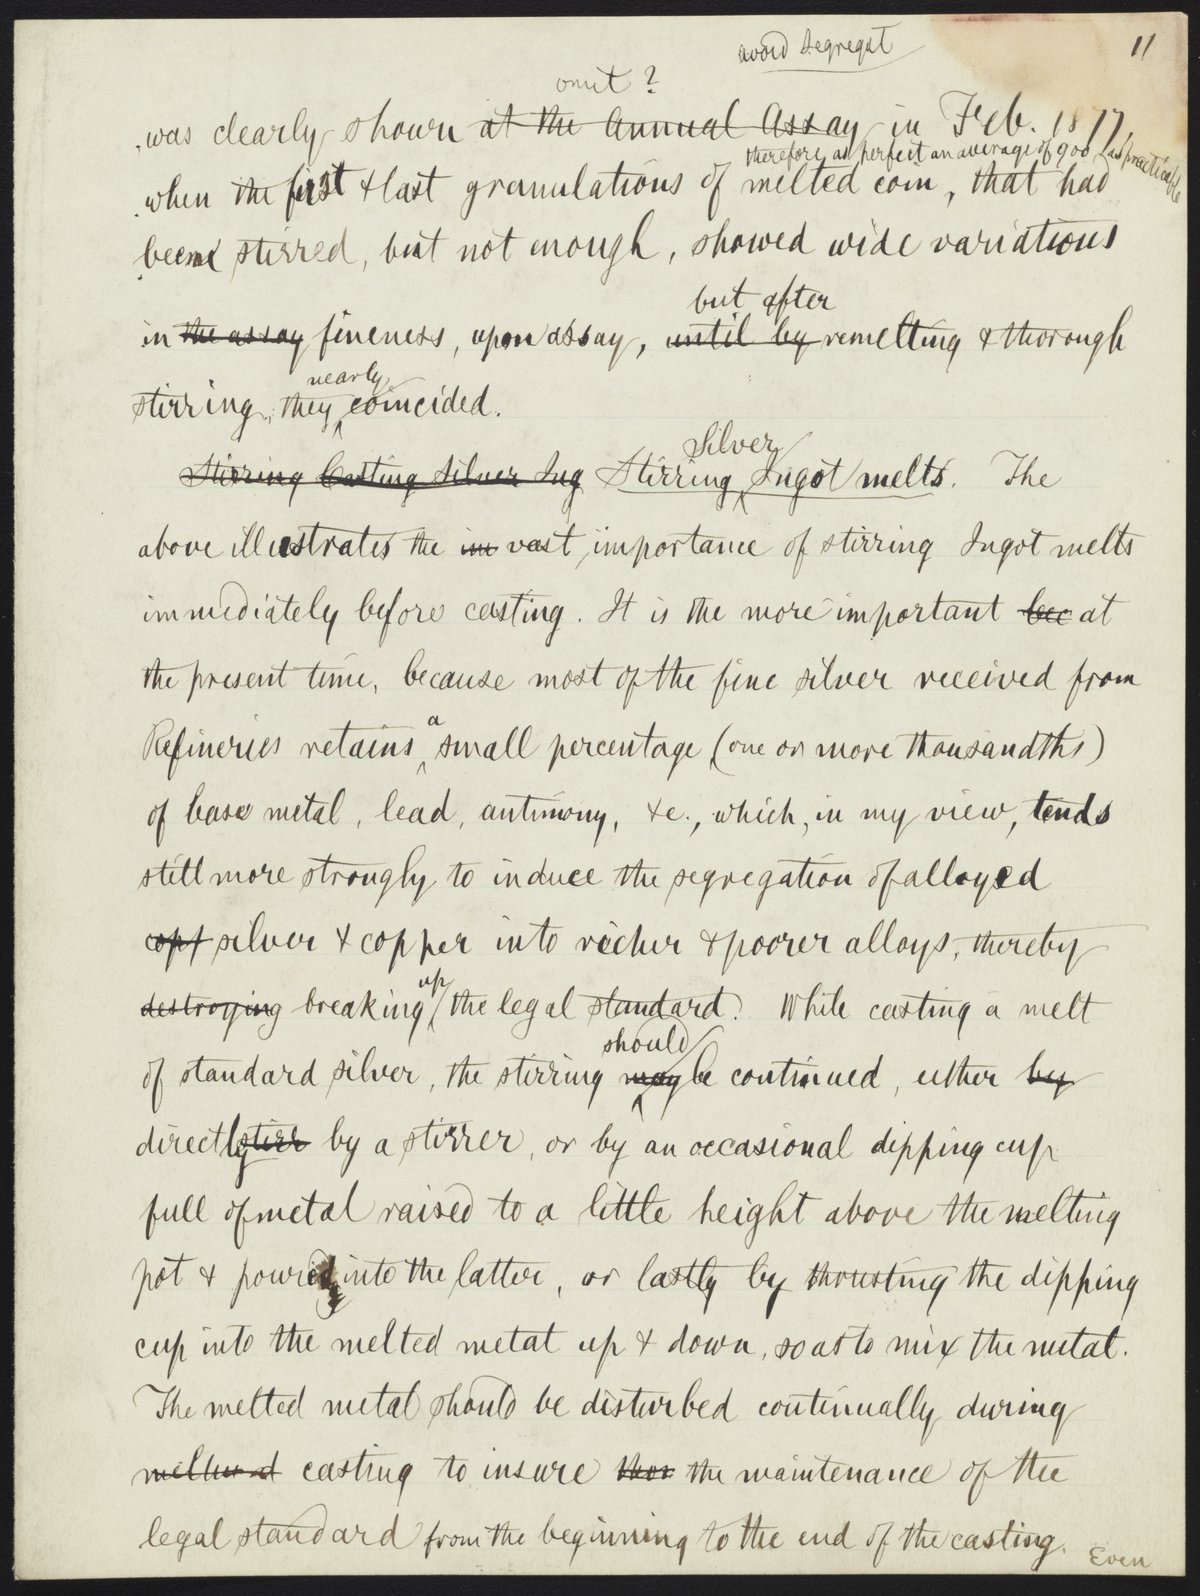 avoid segregat
11
omit ?
was clearly shown at the Annual Assay in Feb. 1877,
therefore as perfect an average of 900 as practicable
when the first & last granulations of melted coin, that had
been stirred, but not enough, showed wide variations
but after
in the assay fineness, upon assay, until by remelting & thorough
nearly
stirring, they coincided.
Silver
Stirring Casting Silver Ing Stirring Ingot melts. The
above illustrates the im vast importance of stirring Ingot melts
immediately before casting. It is the more important bec at
the present time, because most of the fine silver received from
a
Refineries retains small percentage (one or more thousandths)
of base metal, lead, antimony, &c., which, in my view, tends
still more strongly to induce the segregation of alloyed
copp silver & copper into richer & poorer alloys, thereby
up
destroying breaking the legal standard. While casting a melt
should
of standard silver, the stirring may be continued, either by
directly stirr by a stirrer, or by an occasional dipping cup
full of metal raised to a little height above the melting
pot & poured into the latter, or lastly by thrusting the dipping
cup into the melted metal up & down, so as to mix the metal.
The melted metal should be disturbed continually during
casting to insure the maintenance of the
legal standard from the beginning to the end of the casting.
Even